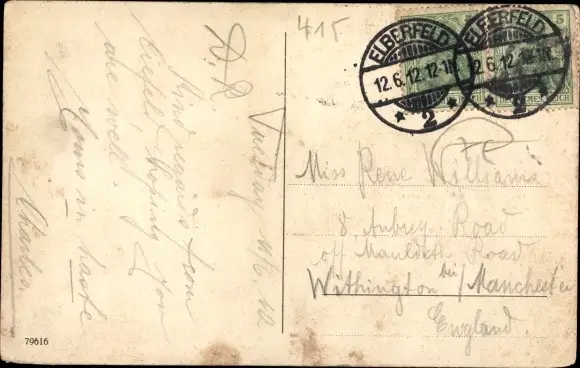 415
ELBERFELD
12.6.12.12-1N
* 2 *
ELBERFELD
12.6.12.12-1N
* 2 *
5
Tuesday 11/6.12
D. R
Kind regards from
hoping you
are well.
Yours in haste
Miss Rene Williams
8 Aubrey Road
off Mauldeth Road
Withington bei/Manchester
England.
79616